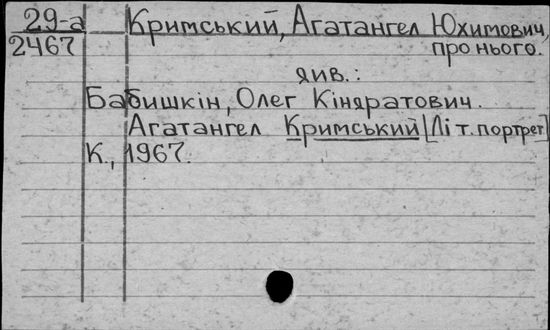 29-а Кримський, Агатангел Юхимович,
2467 про нього.
див.:
Бабишкін, Олег Кіндратович.
Агатангел Кримський [Літ. портрет]
К., 1967.